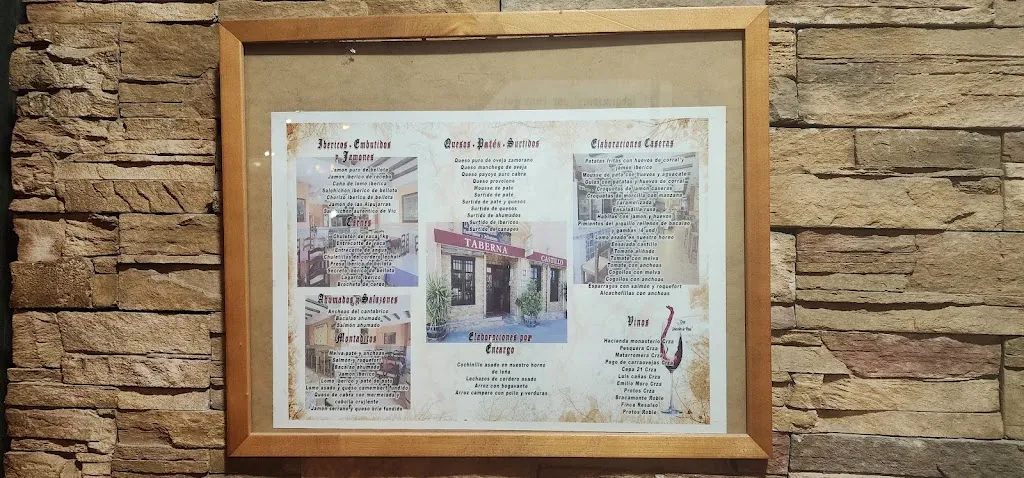 Ibericos - Embutidos
y Jamones
Jamon puro de bellota
Jamon iberico de recebo
Caña de lomo iberica
Salchichon iberico de bellota
Chorizo iberico de bellota
Jamon de las Alpujarras
Salchichon autentico de Vic
Carnes
Chuleton de vaca 1kg
Entrecotte de vaca
Entrecotte de angus
Chuletillas de cordero lechal
Presa iberica de bellota
Secreto iberico de bellota
Lagarto iberico
Brocheta de cerdo
Ahumados y Salazones
Anchoas del cantabrico
Bacalao ahumado
Salmon ahumado
Montaditos
Melva pate y anchoas
Salmon y roquefort
Bacalao ahumado
Jamon iberico
Lomo iberico y pate de pato
Lomo asado y queso camembert fundido
Queso de cabra con mermelada y
cebolla crujiente
Jamon serrano y queso brie fundido
Quesos - Patés - Surtidos
Queso puro de oveja zamorano
Queso manchego de oveja
Queso payoyo puro cabra
Queso provolone
Mousse de pate
Surtido de pate
Surtido de pate y quesos
Surtido de quesos
Surtido de ahumados
Surtido de ibericos
Surtido canapes
TABERNA
CASTILLO
Elaboraciones por
Encargo
Cochinillo asado en nuestro horno
de leña
Lechazos de cordero asado
Arroz con bogavante
Arroz campero con pollo y verduras
Elaboraciones Caseras
Patatas fritas con huevos de corral y
jamon iberico
Mousse de pato con huevos y aguacate
Gulas con patatas y huevos de corral
Croquetas de jamon caseras
Croquetas de morcilla con manzana
caramelizada
Ensaladilla casera
Habitas con jamon y huevos
Pimientos del piquillo rellenos de bacalao
y gambas (4 und)
Lomo asado en nuestro horno
Ensalada castillo
Tomate aliñado
Tomate con melva
Tomate con anchoas
Cogollos con melva
Cogollos con anchoas
Esparragos con salmon y roquefort
Alcachofillas con anchoas
Vinos
Hacienda monasterio Crza
Pesquera Crza
Matarromera Crza
Pago de carraovejas Crza
Cepa 21 Crza
Luis cañas Crza
Emilio Moro Crza
Protos Crza
Bracamonte Roble
Finca Resalso
Protos Roble